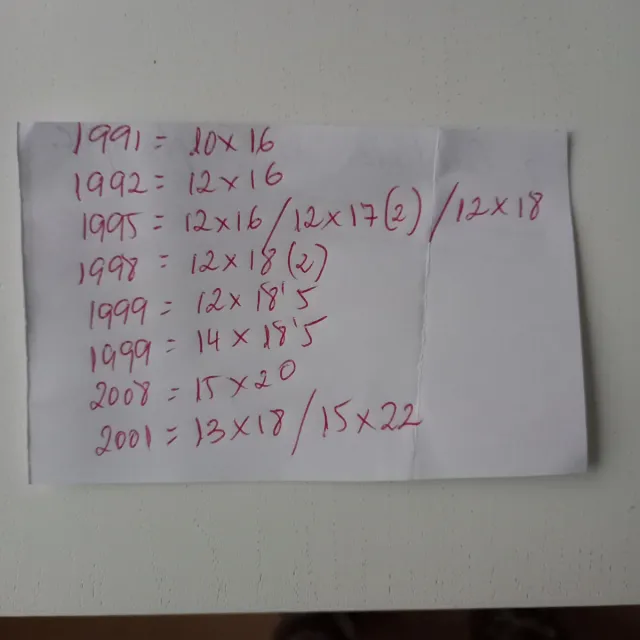 1991 = 10 x 16
1992 = 12 x 16
1995 = 12 x 16 / 12 x 17 (2) / 12 x 18
1998 = 12 x 18 (2)
1999 = 12 x 18'5
1999 = 14 x 18'5
2008 = 15 x 20
2001 = 13 x 18 / 15 x 22